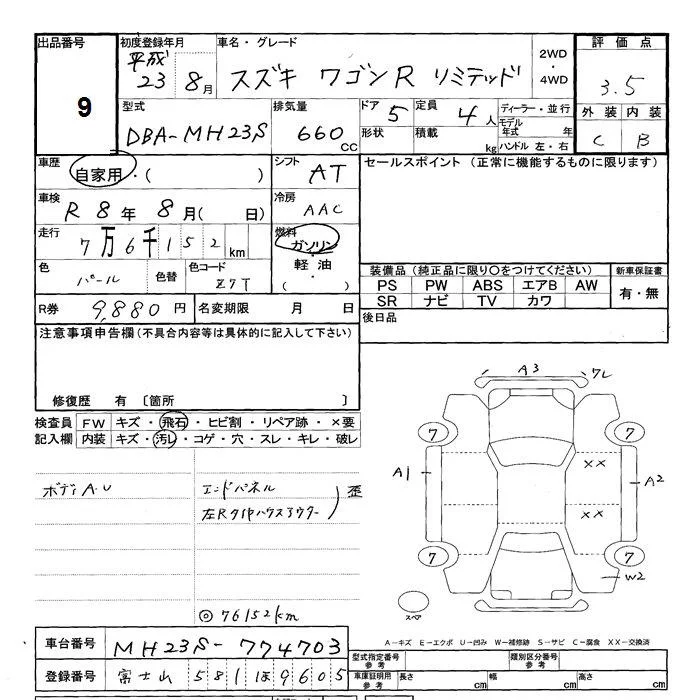 出品番号 初度登録年月 車名・グレード 2WD ・ 4WD 評価点
9
平成 23 8月 スズキ ワゴンR リミテッド 3.5
型式 排気量 ドア 5 定員 4人 ディーラー・並行 外装 内装
DBA-MH23S 660 CC 形状 積載 kg モデル年式 年 ハンドル 左・右 C B
車歴 自家用・( ) シフト AT セールスポイント (正常に機能するものに限ります)
車検 R 8年 8月( 日) 冷房 AAC
走行 7万6千152km 燃料 ガソリン・軽油・( )
色 パール 色替 色コード Z7T
装備品 (純正品に限り○をつけてください) 新車保証書
PS PW ABS エアB AW 有・無
SR ナビ TV カワ
R券 9,880円 名変期限 月 日
後日品
注意事項申告欄(不具合内容等は具体的に記入して下さい)
修復歴 有 〔箇所 〕
検査員記入欄
FW キズ・飛石・ヒビ割・リペア跡・×要
内装 キズ・汚レ・コゲ・穴・スレ・キレ・破レ
ボディA.U エンドパネル 歪
左Rタイヤハウスアウター
◎76152km
A3 7L
7 7
A1 XX A2
XX
7 7
W2
スペア
A-キズ E-エクボ U-凹み W-補修跡 S-サビ C-腐食 XX-交換済
車台番号 MH23S-774703
型式指定番号 参考 類別区分番号 参考
登録番号 富士山 581 ほ 9605
車庫証明用 参考 長さ cm 幅 cm 高さ cm